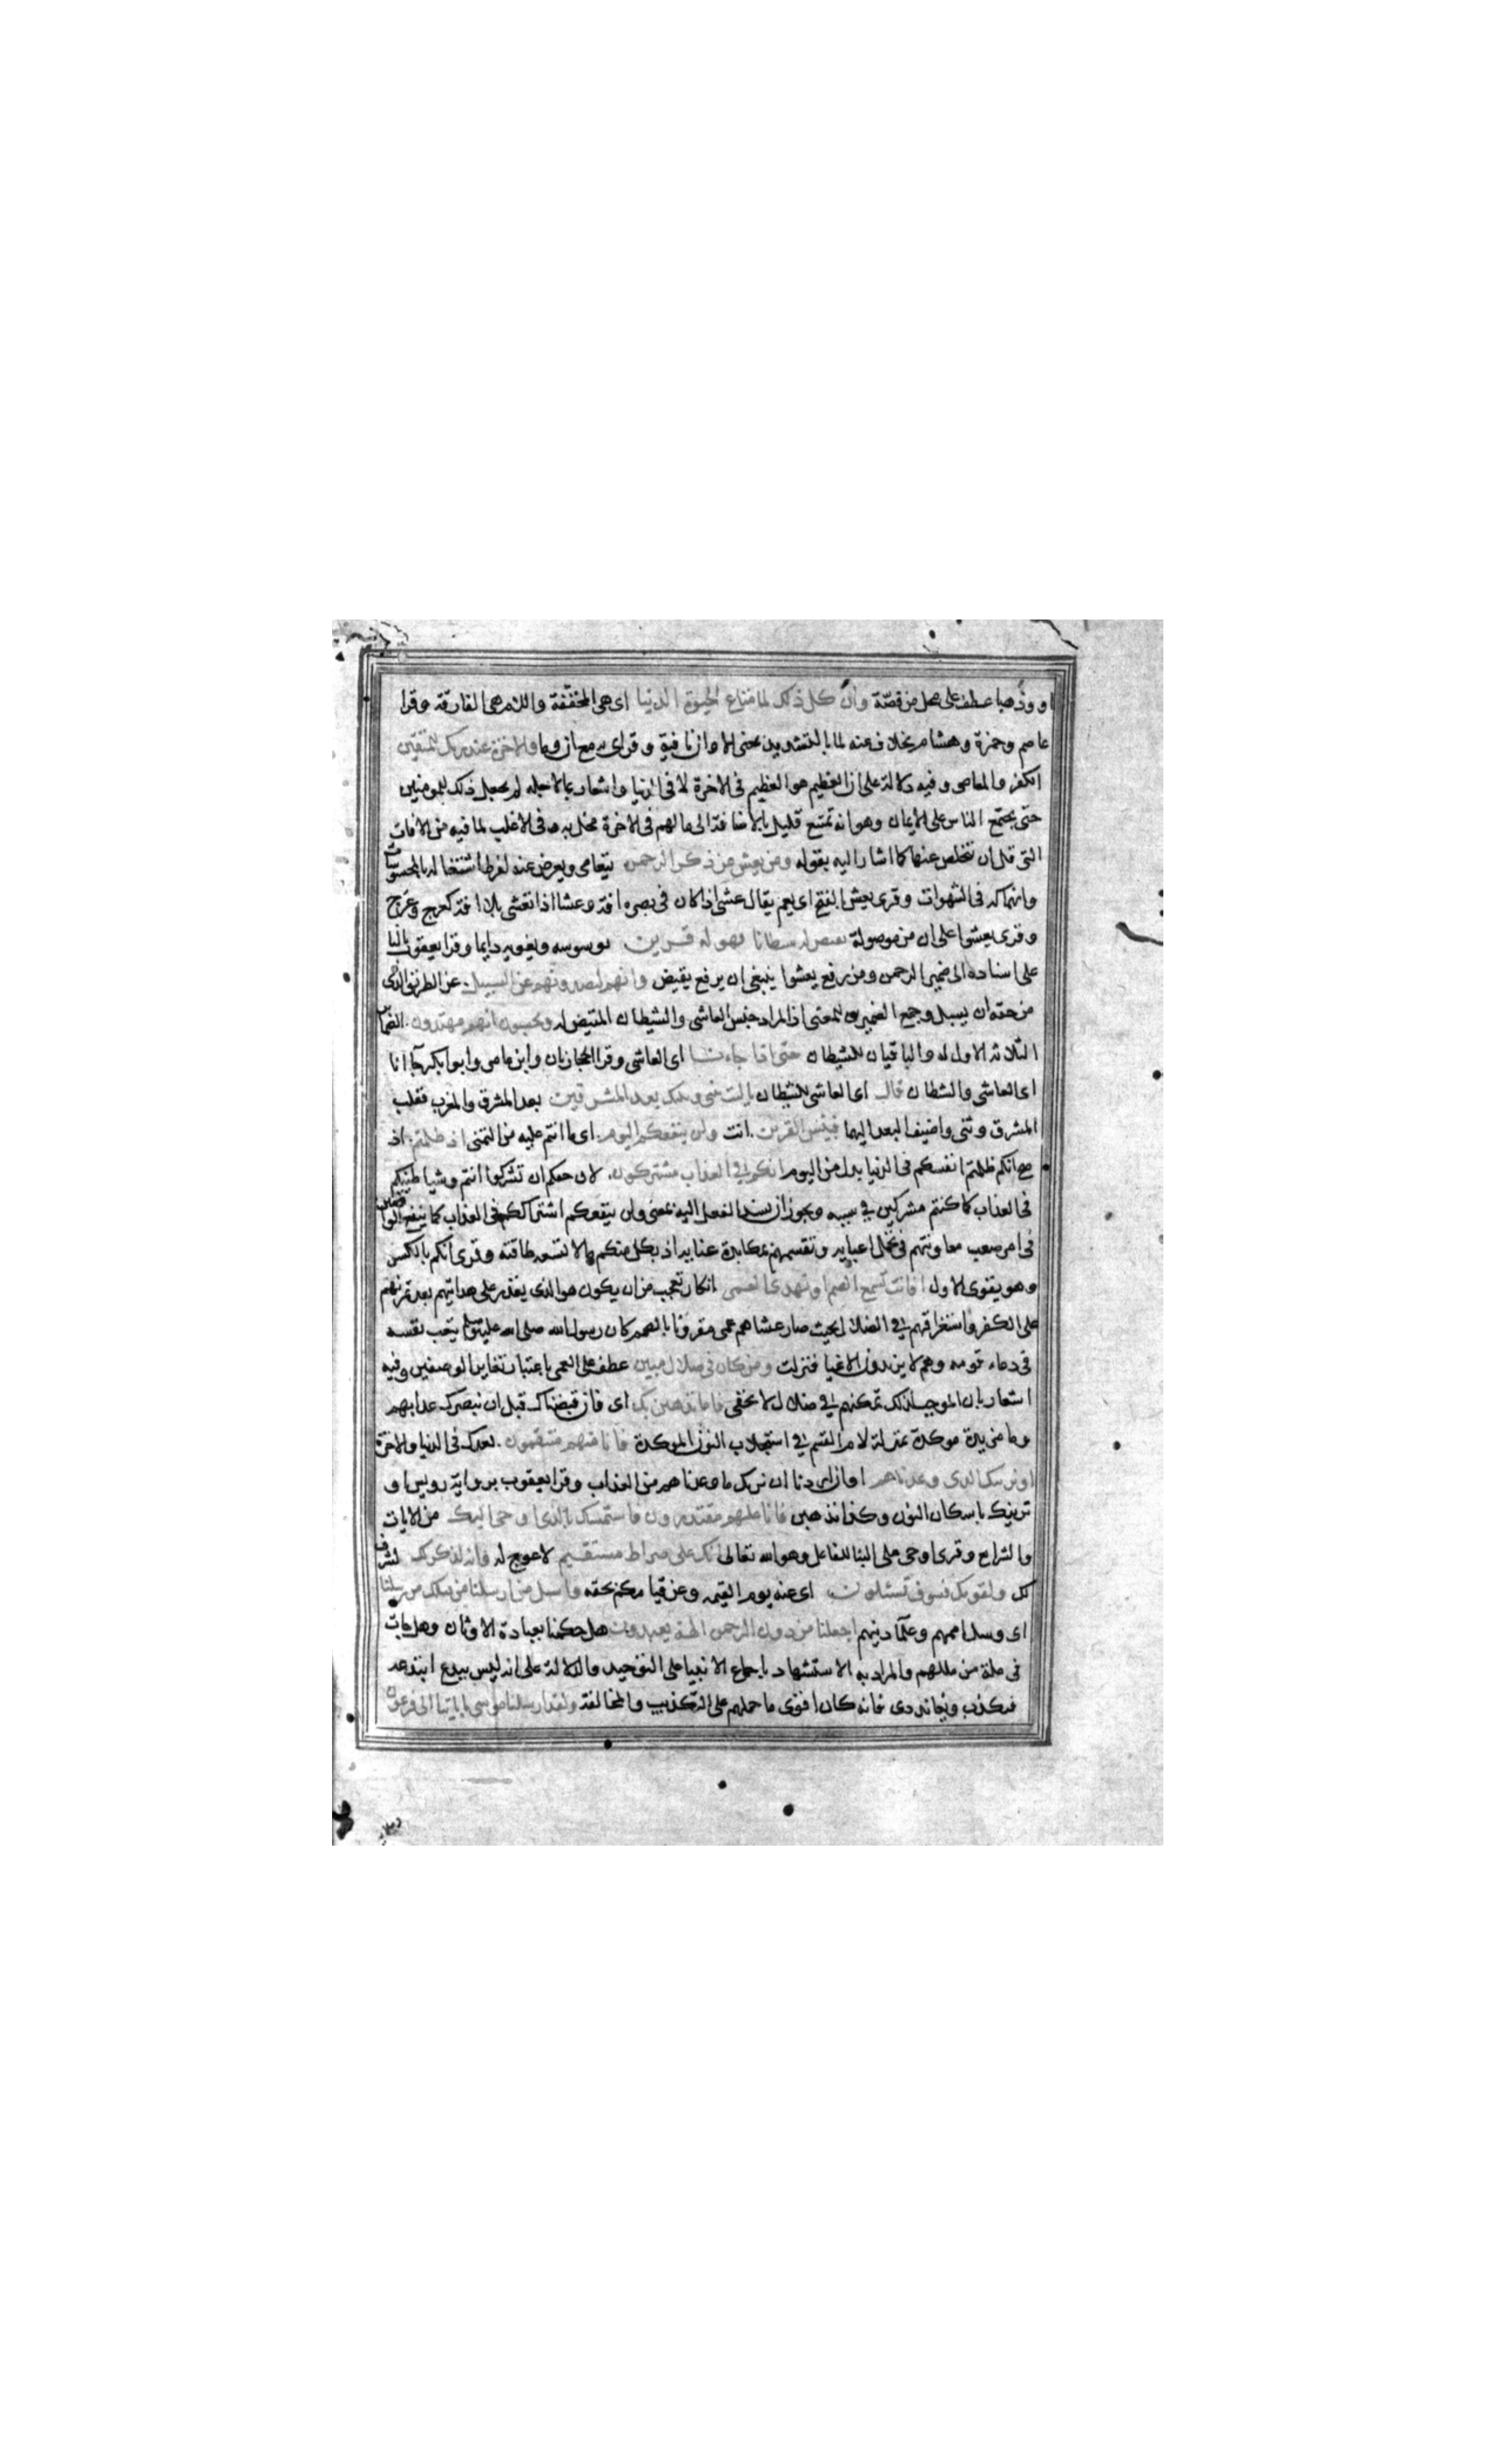 او وذهبا عطف على محل من فضة وان كل ذلك لما متاع الحيوة الدنيا ان هى المخففة واللام هى الفارقة وقرا
عاصم وحمزة وهشام بخلاف عنه لما بالتشديد بمعنى الا وان نافية وقرى به مع ان وما والاخرة عند ربك للمتقين
الكفر والمعاصى وفيه دلالة على ان العظيم هو العظيم فى الاخرة لا فى الدنيا واشعار بما لاجله لم يجعل ذلك للمومنين
حتى يجتمع الناس على الايمان وهو انه تمتع قليل بالاضافة الى ما لهم فى الاخرة مخل به فى الاغلب لما فيه من الافات
التى قل ان تتخلص عنها كما اشار اليه بقوله ومن يعش عن ذكر الرحمن يتعامى ويعرض عنه لفرط اشتغاله بالمحسوسات
وانهماكه فى الشهوات وقرى يعش بالفتح اى يعم يقال عشى اذا كان فى بصره افة وعشا اذا تعشى بلا افة كعرج وعرج
وقرى يعشوا على ان من موصولة نقيض له شيطانا فهو له قرين يوسوسه ويغويه دايما وقرا يعقوب باليا
على اسناده الى ضمير الرحمن ومن رفع يعشوا ينبغى ان يرفع يقيض وانهم ليصدونهم عن السبيل عن الطريق الذى
من حقه ان يسبل وجمع الضميرين للمعنى اذ المراد جنس العاشى والشيطان المقيض له ويحسبون انهم مهتدون الضماير
الثلاثة الاول له والباقيان للشيطان حتى اذا جاءنا اى العاشى وقرا الحجازيان وابن عامر وابوا بكر جاانا
اى العاشى والشيطان قال اى العاشى للشيطان ياليت بينى وبينك بعد المشرقين بعد المشرق والمغرب فغلب
المشرق وثنى واضيف البعد اليهما فبئس القرين انت ولن ينفعكم اليوم اى ما انتم عليه من التمنى اذ ظلمتم اذ
صح انكم ظلمتم انفسكم فى الدنيا بدل من اليوم انكم فى العذاب مشتركون لان حقكم ان تشركوا انتم وشياطينكم
فى العذاب كما كنتم مشركين فى سببه ويجوز ان يسند الفعل اليه بمعنى ولن ينفعكم اشتراككم فى العذاب كما ينفع الواقعين
فى امر صعب معاونتهم فى تحمل اعبايه وتقسمهم بمكابدة عنايه اذ بكل منكم ما لا تسعه طاقته وقرى انكم بالكسر
وهو يقوى الاول افانت تسمع الصم او تهدى العمى انكار تعجب من ان يكون هو الذى يقدر على هدايتهم بعد تمرنهم
على الكفر واستغراقهم فى الضلال بحيث صار عشاهم عمى مقرونا بالصمم كان رسول الله صلى الله عليه وسلم يتعب نفسه
فى دعاء قومه وهم لا يزيدون الا غيا فنزلت ومن كان فى ضلال مبين عطف على العمى باعتبار تغاير الوصفين وفيه
اشعار بان الموجب لذلك تمكنهم فى ضلال لا يخفى فاما نذهبن بك اى فان قبضناك قبل ان نبصرك عذابهم
وما مزيدة موكدة بمنزلة لام القسم فى استجلاب النون الموكدة فانا منهم منتقمون بعدك فى الدنيا والاخرة
او نرينك الذى وعدناهم او ان اردنا ان نريك ما وعدناهم من العذاب وقرا يعقوب برواية رويس او
نرينك باسكان النون وكذا نذهبن فانا عليهم مقتدرون فاستمسك بالذى اوحى اليك من الايات
والشرايع وقرى اوحى على البنا للفاعل وهو الله تعالى انك على صراط مستقيم لا عوج له وانه لذكر لك لشرف
لك ولقومك فسوف تسئلون اى عنه يوم القيمة وعن قيامكم بحقه واسل من ارسلنا من قبلك من رسلنا
اى وسل اممهم وعلما دينهم اجعلنا من دون الرحمن الهة يعبدون هل حكمنا بعبادة الاوثان وهل جات
فى ملة من مللهم والمراد به الاستشهاد باجماع الانبيا على التوحيد والدلالة على انه ليس ببدع ابتدعه
فيكذب ويعادى فانه كان اقوى ما حملهم على التكذيب والمخالفة ولقد ارسلنا موسى باياتنا الى فرعون